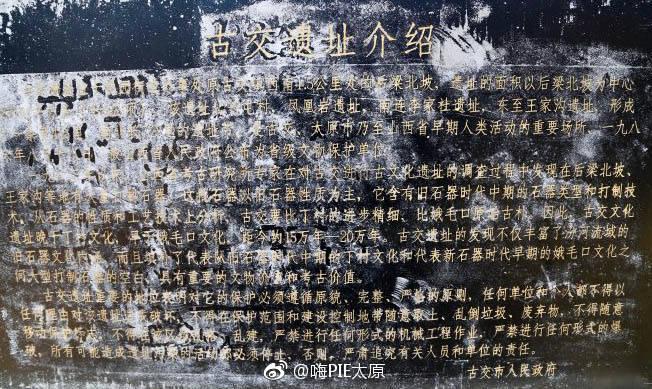 古交遗址介绍
古交 1.5公里处的后梁北坡，遗址的面积以后梁北坡为中心
凤凰岩遗址，南连李家社遗址，东至王家沟遗址，形成
太原市乃至山西省早期人类活动的重要场所，一九八
年 人民政府公布为省级文物保护单位。
研究所专家在对古交进行古文化遗址的调查过程中发现在后梁北坡、
王家沟等地有 石器，以旧石器性质为主，它含有旧石器时代中期的石器类型和打制技
术，从石器的性质和工艺技术上分析，古交要比丁村的进步精细，比娥毛口原始古朴，因此，古交文化
遗址晚于丁村文化，早于娥毛口文化，距今约15万年—20万年，古交遗址的发现不仅丰富了汾河流域的
旧石器文化内涵，而且填补了代表从旧石器时代中期的丁村文化和代表新石器时代早期的娥毛口文化之
间大型打制石器的空白，具有重要的文物价值和考古价值。
古交遗址重要的地位表明对它的保护必须遵循原貌、完整、严格的原则，任何单位和个人都不得以
任何理由对该遗址进行破坏，不得在保护范围和建设控制地带随意取土、乱倒垃圾、废弃物，不得随意
移动保护标志，不得在该区 乱建，严禁进行任何形式的机械工程作业，严禁进行任何形式的爆
破，所有可能造成遗址 的活动都必须停止，否则，严肃追究有关人员和单位的责任。
古交市人民政府
@嗨PIE太原